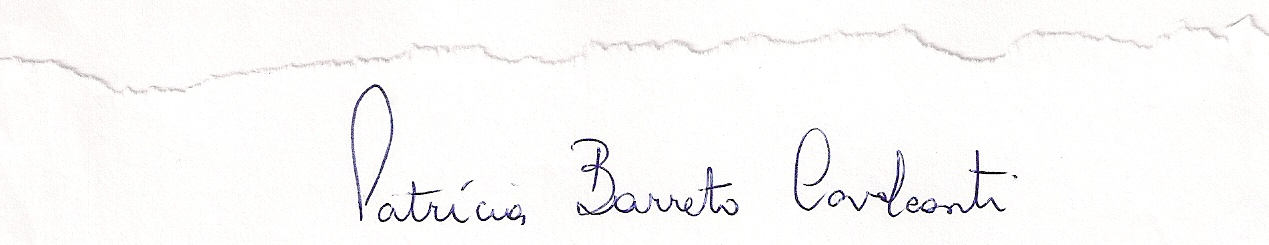 Patrícia Barreto Cavalcanti